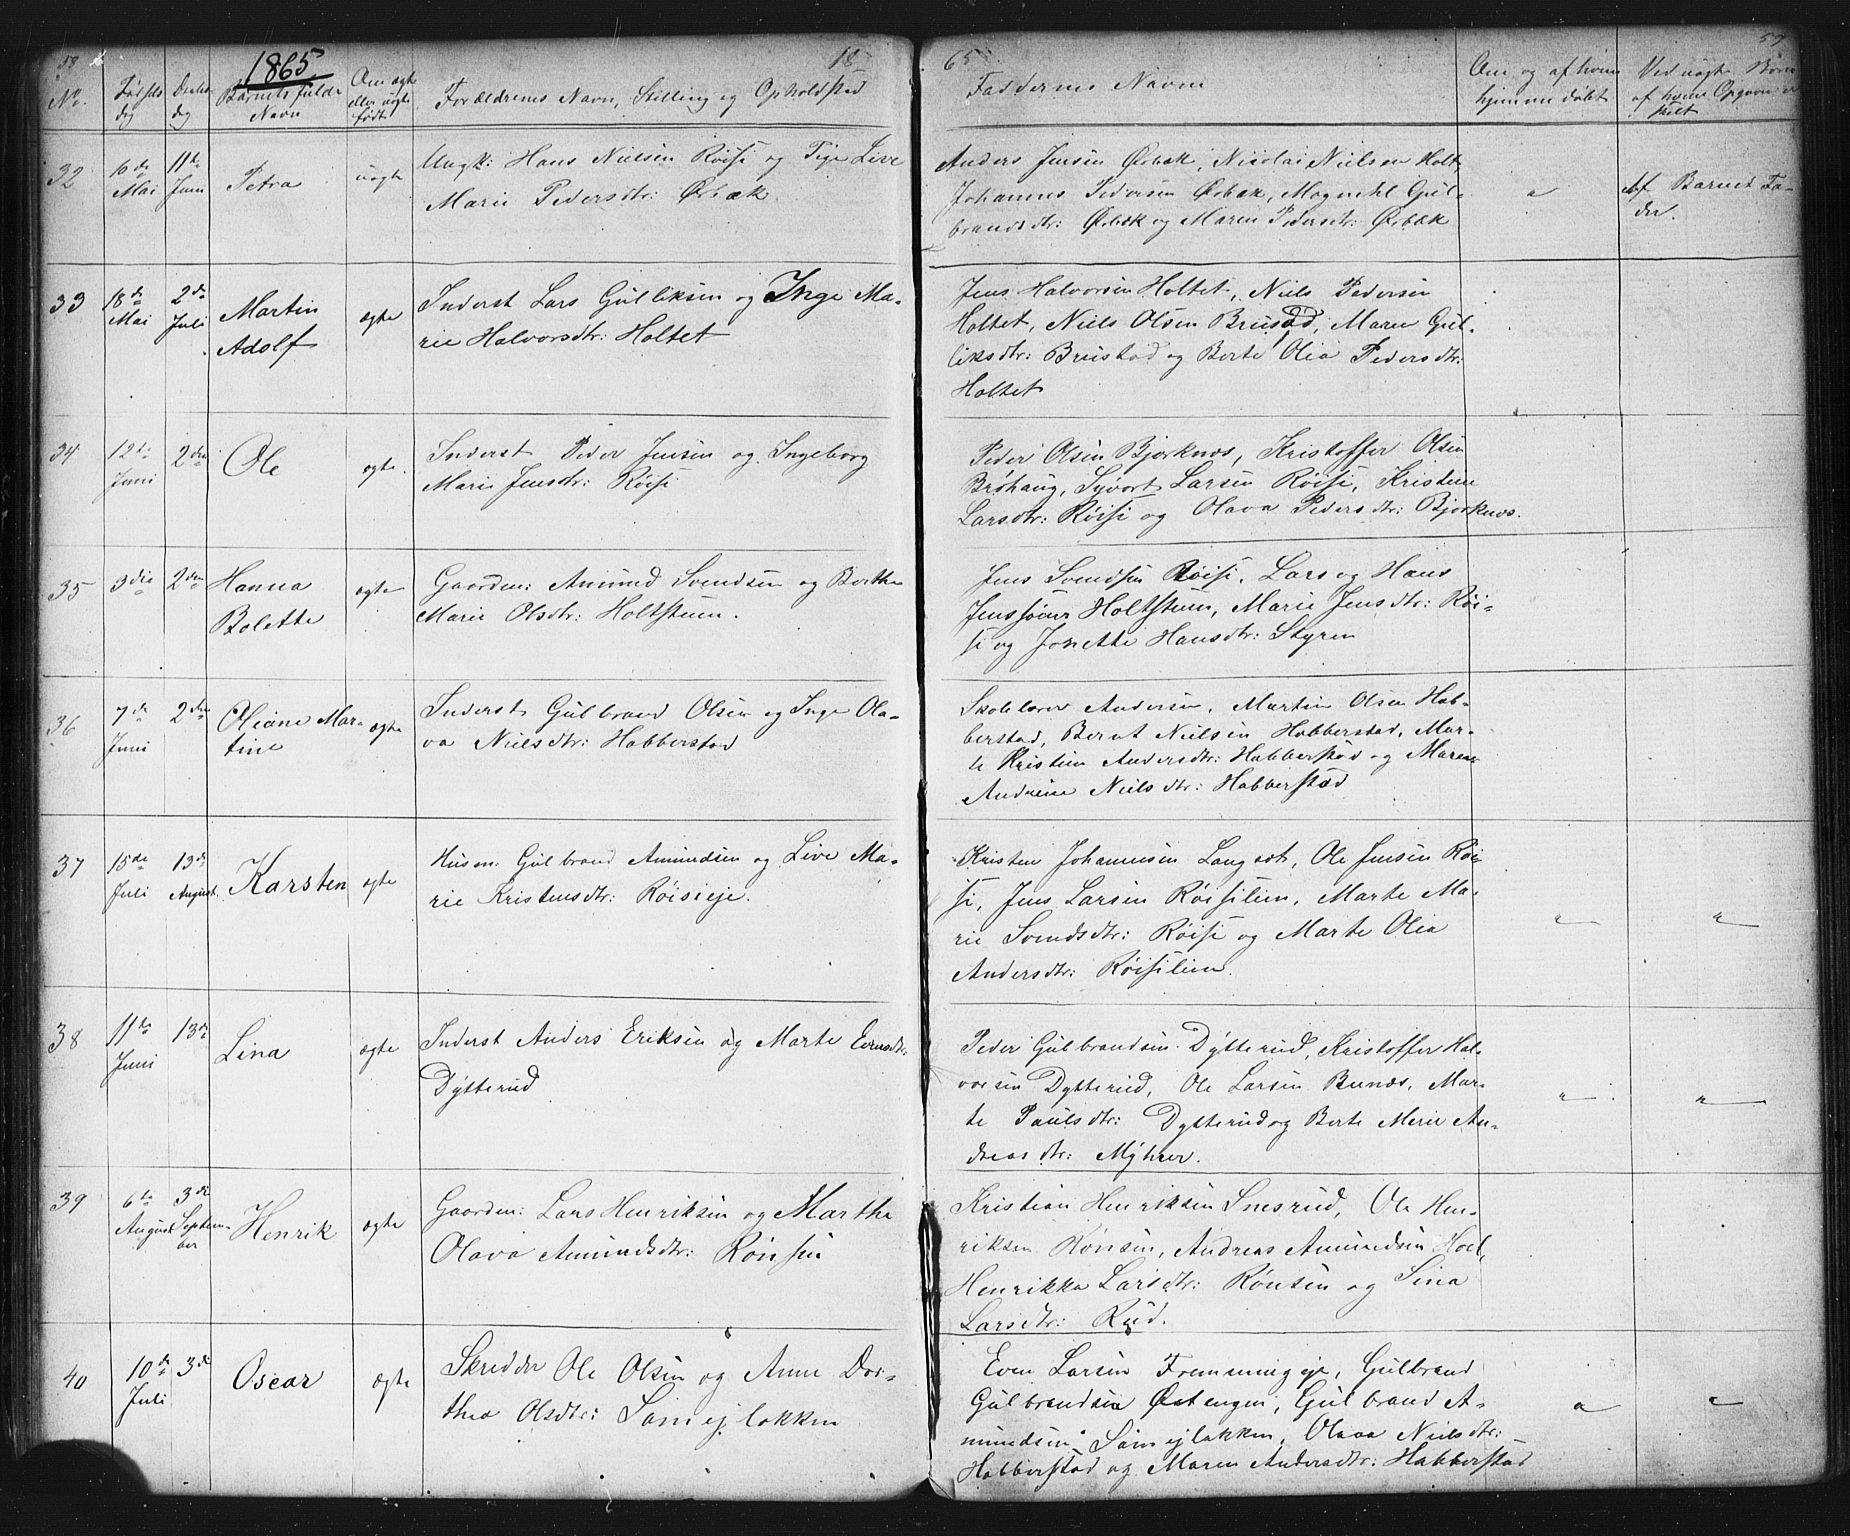 58
1865
18
65
59
No.
Fødsels
dag
Daabs
dag
Barnets fulde
Navn
Om ægte
eller uægte
født
Forældrenes Navn, Stilling og Opholdsted
Faddernes Navne
Om og af hvem
hjemmedøbt
Ved uægte Børn
af hvem Opgaven er
skeet
32
10de
Mai
11te
Juni
Petra
uægte
Ungk: Hans Nielsen Røisi og Pige Live
Marie Pedersdtr: Ørbæk.
Anders Jensen Ørbæk, Nicolai Nielsen Holt,
Johannes Pedersen Ørbæk, Magnhil Gul-
brandsdtr: Ørbæk og Maren Pedersdtr: Ørbæk
"
Af Barnets Fa-
der.
33
18de
Mai
2den
Juli
Martin
Adolf
ægte
Inderst Lars Gulliksen og Inge Ma-
rie Halvorsdtr: Holtet
Jens Halvorsen Holtet, Niels Pedersen
Holtet, Niels Olsen Brustad, Maren Gul-
liksdtr: Brustad og Berte Olia Pedersdtr:
Holtet
34
12te
Juni
2den
Ole
ægte.
Inderst Peder Jensen og Ingeborg
Marie Jensdtr: Røisi
Peder Olsen Bjørknes, Kristoffer Olsen
Bröhaug, Syvert Larsen Røisi, Kristine
Larsdtr: Røisi og Olava Pedersdtr: Bjørknes.
35
3die
2den
Hanna
Bolette
ægte
Gaardm: Amund Svendsen og Berthe
Marie Olsdtr: Holtstuen.
Jens Svendsen Røisi, Lars og Hans
Jenssønner Holtstuen, Marie Jensdtr: Røi-
si og Jonette Hansdtr: Styren
36
7de
Juni
2den
Oliane Mar-
tine
ægte
Inderst Gulbrand Olsen og Inge Ola-
va Nielsdtr: Habberstad
Skolelærer Andersen, Martin Olsen Hab-
berstad, Bernt Nielsen Habberstad, Mar-
te Kristine Andersdtr: Habberstad og Maren
Andrine Nielsdtr: Habberstad
37
15de
Juli
13de
August.
Karsten
ægte
Husm: Gulbrand Amundsen og Live Ma-
rie Kristensdtr: Røisieje.
Kristen Johannesen Langset, Ole Jensen Røi-
si, Jens Larsen Røisilien, Marte Ma-
rie Svendsdtr: Røisi og Marte Olia
Andersdtr: Røisilien.
"
"
38
11te
Juni
13de
Lina
ægte
Inderst Anders Eriksen og Marte Evensdtr:
Dytterud
Peder Gulbrandsen Dytterud, Kristoffer Hal-
vorsen Dytterud, Ole Larsen Bunæs, Mar-
te Paulsdtr: Dytterud og Berte Merie An-
dreasdtr: Myhrer.
"
"
39
6te
August
3die
Septem-
ber
Henrik
ægte
Gaardm: Lars Henriksen og Marthe
Olava Amundsdtr: Rønsen
Kristian Henriksen Snesrud, Ole Hen-
riksen Rønsen, Andreas Amundsen Hoel,
Henrikka Larsdtr: Rønsen og Sina
Larsdtr: Rud.
40
10de
Juli
3die
Oscar
ægte
Skredder Ole Olsen og Anne Dor-
thea Olsdtr: Samejløkken
Even Larsen Fremmingeje, Gulbrand
Gulbrandsen Østengen, Gulbrand A-
mundsen Samejløkken, Olava Nielsdtr:
Habberstad og Maren Andersdtr: Habberstad
"
"